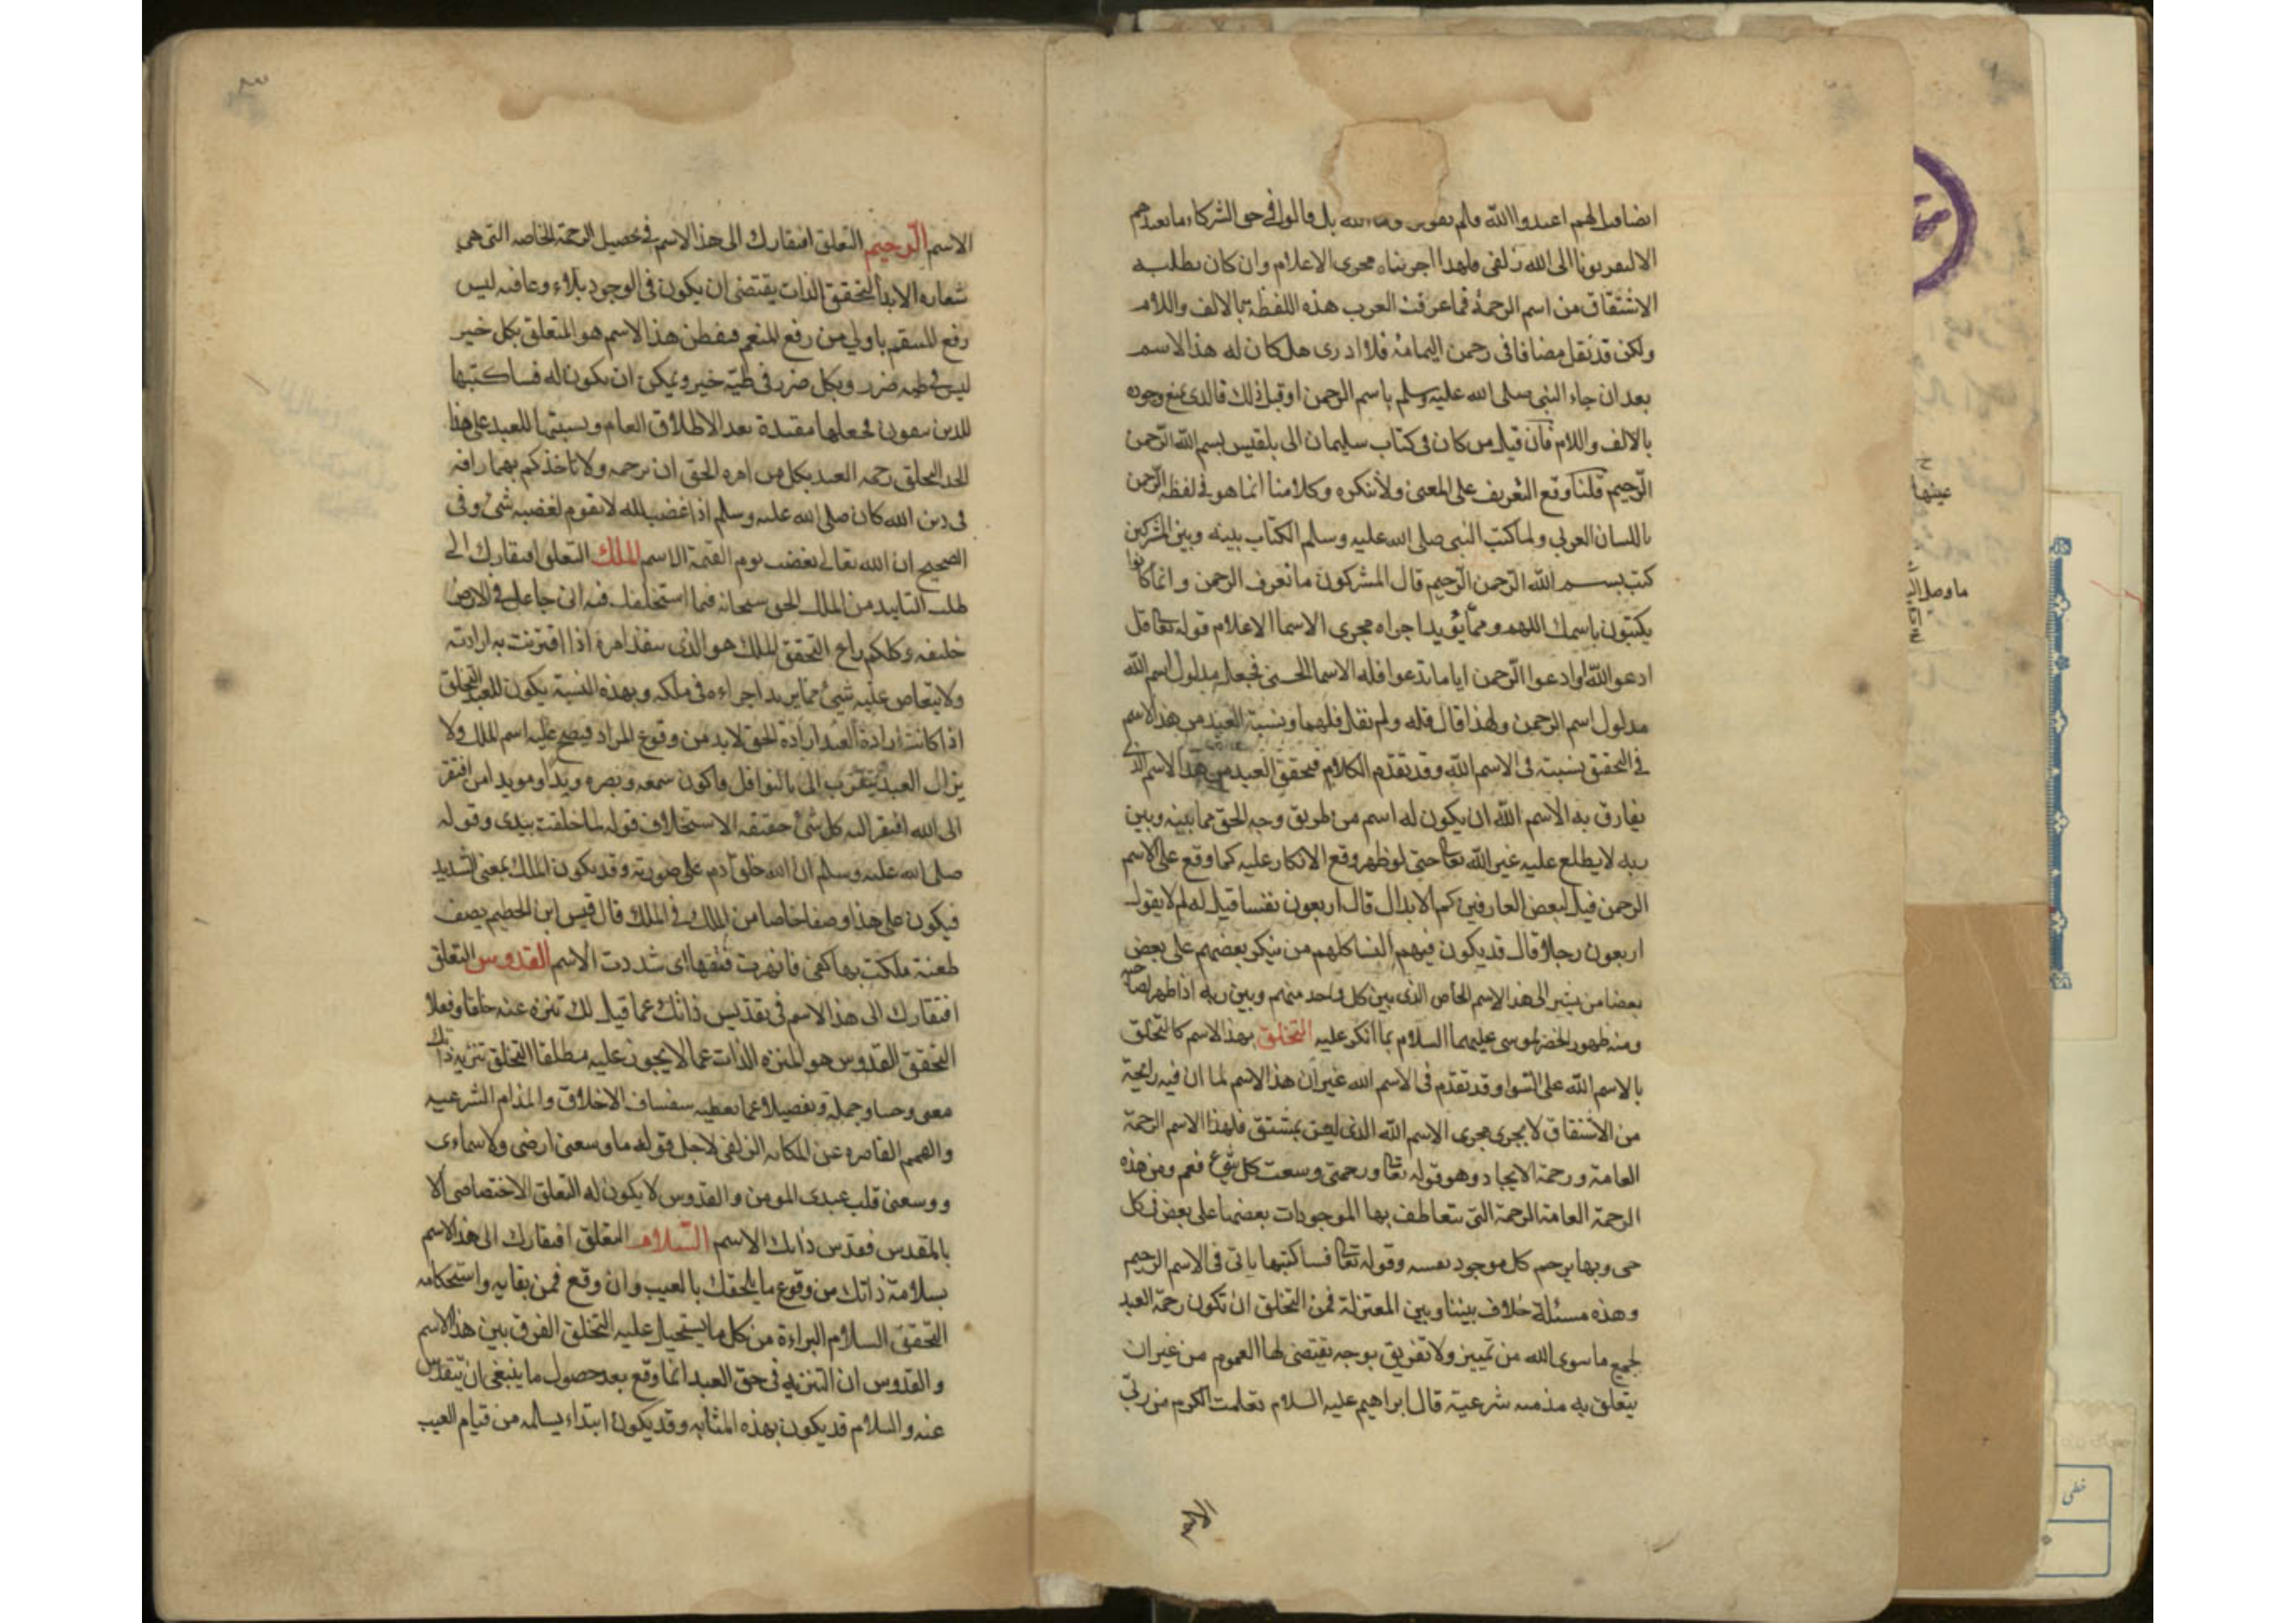 ايضا قيل لهم اعبدوا الله فلم يقولوا وما الله بل قالوا في حق الشركاء ما نعبدهم
الا ليقربونا الى الله زلفى فلهذا اجريناه مجرى الاعلام وان كان يطلبه
الاشتقاق من اسم الرحمة فما عرفت العرب هذه اللفظة بالالف واللام
ولكن قد نقل مضافا في رحمن اليمامة فلا ادرى هل كان له هذا الاسم
بعد ان جاء النبي صلى الله عليه وسلم باسم الرحمن او قبل ذلك فالذى نمنع وجوده
بالالف واللام فان قيل من كان فى كتاب سليمان الى بلقيس بسم الله الرحمن
الرحيم قلنا وقع التعريف على المعنى ولا ننكره وكلامنا انما هو فى لفظة الرحمن
باللسان العربي ولما كتب النبي صلى الله عليه وسلم الكتاب بينه وبين المشركين
كتب بسم الله الرحمن الرحيم قال المشركون ما نعرف الرحمن وانما كانوا
يكتبون باسمك اللهم ومما يؤيد اجراه مجرى الاسما الاعلام قوله تعا قل
ادعوا الله او ادعوا الرحمن ايا ما تدعوا فله الاسما الحسنى فجعله مدلول اسم الله
مدلول اسم الرحمن ولهذا قال فله ولم نقل فلهما ونسبة العبد من هذا الاسم
فى التحقق نسبته فى الاسم الله وقد تقدم الكلام فتحقق العبد من هذا الاسم الذى
يفارق به الاسم الله ان يكون له اسم من طريق وجه الحق مما بينه وبين
ربه لا يطلع عليه غير الله تعا حتى لو ظهر وقع الانكار عليه كما وقع على الاسم
الرحمن قيل لبعض العارفين كم الابدال قال اربعون نفسا قيل له لم لا يقول
اربعون رجلا قال قد يكون فيهم النسا كلهم من ينكر بعضهم على بعض
بعضا من يشير الى هذا الاسم الخاص الذى بين كل واحد منهم وبين ربه اذا ظهر لصاحبه
ومنه ظهور الخضر لموسى عليهما السلام بما انكر عليه التخلق بهذا الاسم كالتخلق
بالاسم الله على السوا وقد تقدم فى الاسم الله غير ان هذا الاسم لما ان فيه رايحة
من الاشتقاق لا يجرى مجرى الاسم الله الذى ليس بمشتق فلهذا الاسم الرحمة
العامة ورحمة الايجاد وهو قوله تعا ورحمتى وسعت كل شئ فعم ومن هذه
الرحمة العامة الرحمة التى يتعاطف بها الموجودات بعضها على بعض فى كل
حى وبها يرحم كل موجود نفسه وقوله تعا فساكتبها ياتى فى الاسم الرحيم
وهذه مسئلة خلاف بيننا وبين المعتزلة فمن التخلق ان تكون رحمة العبد
لجميع ما سوى الله من تمييز ولا تفريق بوجه تقتضى لها العموم من غير ان
يتعلق به مذمه شرعية قال ابراهيم عليه السلام تعلمت الكرم من ربى
الاسم الرحيم التعلق افتقارك الى هذا الاسم فى تحصيل الرحمة الخاصه التى هى
التحقق الذات يقتضى ان يكون فى الوجود بلاء وعافيه ليس
رفع للسقم باولى من رفع للنعم فيفطن هذا الاسم هو المتعلق بكل خير
ليس فى طيه ضرر وبكل ضرر فى طيه خير ويمكن ان يكون له فساكتبها
للذين يتقون فجعلها مقيدة بعد الاطلاق العام ونسبتها للعبد على هذا
الحد التخلق رحمه العبد بكل من امره الحق ان يرحمه ولا تاخذكم بهما رافه
فى دين الله كان صلى الله عليه وسلم اذا غضب لله لا يقوم لغضبه شئ وفى
الصحيح ان الله تعالى يغضب يوم القيمة الاسم الملك التعلق افتقارك الى
طلب التاييد من الملك الحق سبحانه فيما استخلفك فيه انى جاعل فى الارض
خليفه وكلكم راع التحقق الملك هو الذى ينفذ امره اذا اقترنت به ارادته
ولا يتعاص عليه شئ مما يريد اجراءه فى ملكه وبهذه النسبة يكون للعبد التخلق
اذا كانت ارادة العبد ارادة الحق لابد من وقوع المراد فيصح عليه اسم الملك ولا
يزال العبد يتقرب الى بالنوافل فاكون سمعه وبصره ويدا ومويدا من افتقر
الى الله افتقر اليه كل شئ حقيقه الاستخلاف قوله لما خلقت بيدى وقوله
صلى الله عليه وسلم ان الله خلق ادم على صورته وقد يكون الملك بمعنى الشديد
فيكون على هذا وصفا خاصا من الملك فى الملك قال قيس ابن الحطيم يصف
طعنة ملكت بها كفى فانهرت فتقها اى شددت الاسم القدوس التعلق
افتقارك الى هذا الاسم فى تقديس ذاتك عما قيل لك تنزه عنه خلقا وفعلا
التحقق القدوس هو المنزه الذات عما لا يجوز عليه مطلقا التخلق تنزيه ذاتك
معنى وحسا وجملة وتفصيلا عما يعطيه سفساف الاخلاق والمذام الشرعيه
والهمم القاصره عن المكانه الزلفى لاجل قوله ما وسعنى ارضى ولا سماءى
ووسعنى قلب عبدى المومن والقدوس لا يكون له التعلق الاختصاصى الا
بالمقدس فقدس ذاتك الاسم السلام التعلق افتقارك الى هذا الاسم
بسلامة ذاتك من وقوع ما يلحقك بالعيب وان وقع فمن بقايه واستحكامه
التحقق السلام البراءة من كل ما يستحيل عليه التخلق الفرق بين هذا الاسم
والقدوس ان التنزيه فى حق العبد انما وقع بعد حصول ما ينبغى ان يتقدس
عنه والسلام قد يكون بهذه المثابه وقد يكون ابتداء يسالمه من قيام العيب
عينها
خطى